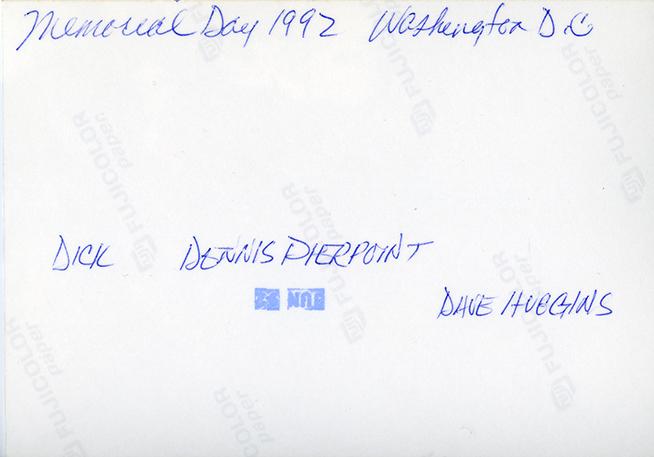 Memorial Day 1992 Washington D C
DICK DENNIS PIERPOINT
JUN
DAVE HUGGINS
FUJICOLOR
paper
FUJICOLOR
paper
FUJICOLOR
paper
FUJICOLOR
paper
FUJICOLOR
paper
FUJICOLOR
paper
FUJICOLOR
paper
FUJICOLOR
paper